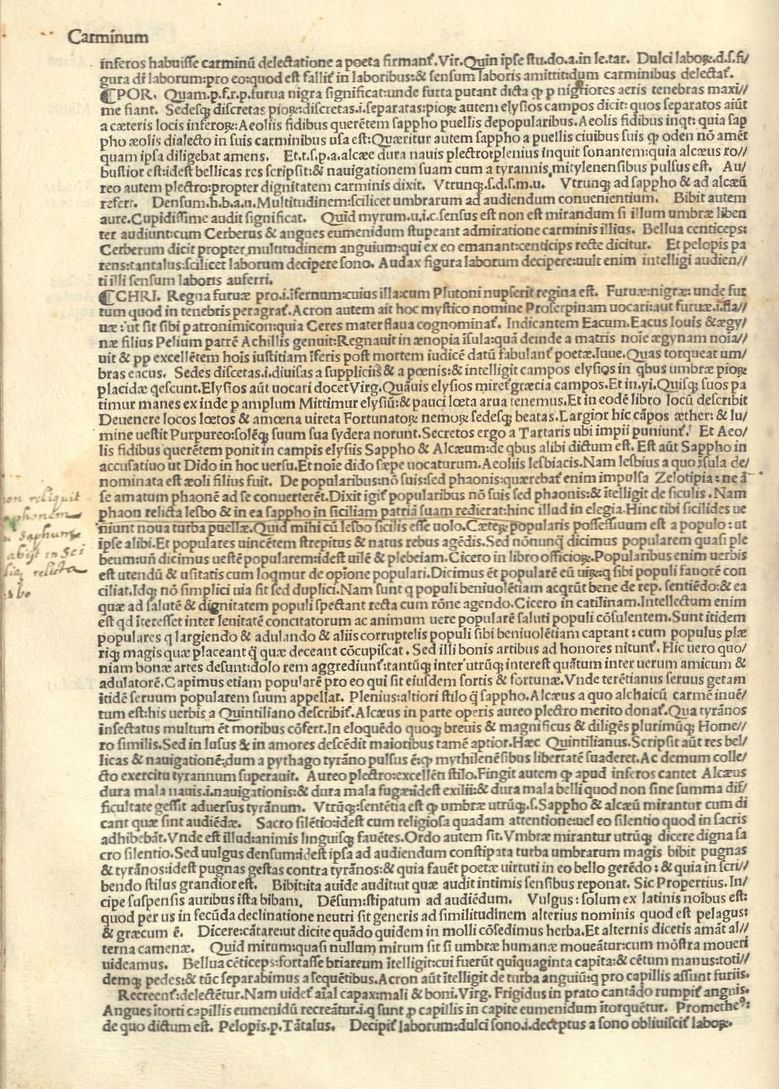 Carminum
inferos habuisse carminū delectatione a poeta firmant᷑. Vir. Quin ipse stu. do. a. in le. tar. Dulci laboꝝ. d. s. fi/
gura dr̄ laborum: pro eo: quod est fallit᷑ in laboribus: & sensum laboris amittit: dum carminibus delectat᷑.
¶POR. Quam. p. f. r. p. furua nigra significat: unde furta putant dicta ꝙ p nigriores aeris tenebras maxi//
me fiant. Sedesqꝫ discretas pioꝝ: discretas. i. separatas: pioꝝ autem elysios campos dicit: quos separatos aiūt
a cæteris locis inferoꝝ: Aeoliis fidibus querētem sappho puellis de popularibus. Aeolis fidibus inqt: quia sap
pho æolis dialecto in suis carminibus usa est: Quæritur autem sappho a puellis ciuibus suis ꝙ oden nō amēt
quam ipsa diligebat amens. Et. t. s. p. a. alcæe dura nauis plectro: plenius inquit sonantem: quia alcæus ro//
bustior est: idest bellicas res scripsit: & nauigationem suam cum a tyrannis mitylenensibus pulsus est. Au/
reo autem plectro: propter dignitatem carminis dixit. Vtrunqꝫ. s. d. s. m. u. Vtrunqꝫ ad sappho & ad alcæū
refert. Densum. h. b. a. u. Multitudinem: scilicet umbrarum ad audiendum conuenientium. Bibit autem
aure. Cupidissime audit significat. Quid myrum. u. i. c. sensus est non est mirandum si illum umbræ liben
ter audiunt: cum Cerberus & angues eumenidum stupeant admiratione carminis illius. Bellua centiceps:
Cerberum dicit propter multitudinem anguium: qui ex eo emanant: centiceps recte dicitur. Et pelopis pa
rens: tantalus: scilicet laborum decipere sono. Audax figura laborum decipere: uult enim intelligi audien//
ti illi sensum laboris auferri.
¶CHRI. Regna furuæ pro. i. ifernum: cuius illa: cum Plutoni nupserit regina est. Furuæ: nigræ: unde fur
tum quod in tenebris peragrat᷑. Acron autem ait hoc mystico nomine Proserpinam uocari: aut furuæ. i. fla//
uæ: ut sit sibi patronimicon: quia Ceres mater flaua cognominat᷑. Iudicantem Eacum. Eacus Iouis & ægy/
næ filius Pelium patrē Achillis genuit: Regnauit in ænopia isula: quā deinde a matris noie ægynam noia//
uit & pp excellētem hois iustitiam iferis post mortem iudicē datū fabulant᷑ poetæ. Iuue. Quas torqueat um/
bras eacus. Sedes discetas. i. diuisas a suppliciis & a pœnis: & intelligit campos elysios in qbus umbræ pioꝝ
placidæ qescunt. Elysios aūt uocari docet Virg. Quāuis elysios miret᷑ græcia campos. Et in. yi. Quisqꝫ suos pa
timur manes ex inde p amplum Mittimur elysiū: & pauci lœta arua tenemus. Et in eodē libro locū describit
Deuenere locos lœtos & amœna uireta Fortunatoꝝ nemoꝝ sedesqꝫ beatas. Largior hic cāpos æther: & lu/
mine uestit Purpureo: solēqꝫ suum sua sydera norunt. Secretos ergo a Tartaris ubi impii puniunt᷑. Et Aeo/
liis fidibus querētem ponit in campis elysiis Sappho & Alcæum: de qbus alibi dictum est. Est aūt Sappho in
accusatiuo ut Dido in hoc uersu. Et noie dido sæpe uocaturum. Aeoliis lesbiacis. Nam lesbius a quo isula de/
nominata est æoli filius fuit. De popularibus: nō suis: sed phaonis: quærebat᷑ enim impulsa Zelotipia: ne ā
se amatum phaonē ad se conuerterēt. Dixit igit᷑ popularibus nō suis sed phaonis: & itelligit de siculis. Nam
phaon relicta lesbo & in ea sappho in siciliam patriā suam redierat: hinc illud in elegia. Hinc tibi sicilides ue
niunt noua turba puellæ. Quid mihi cū lesbo sicilis esse uolo. Cæteꝝ popularis possessiuum est a populo: ut
ipse alibi. Et populares uincētem strepitus & natus rebus agēdis. Sed nōnunqꝫ dicimus popularem quasi ple
beum: uñ dicimus uestē popularem: idest uilē & plebeiam. Cicero in libro officioꝝ. Popularibus enim uerbis
est utendū & usitatis cum loqmur de opione populari. Dicimus ēt popularē eū uiꝝ: q sibi populi fauorē con
ciliat. Idqꝫ nō simplici uia fit sed duplici. Nam sunt q populi beniuolētiam acqrūt bene de rep. sentiēdo: & ea
quæ ad salutē & dignitatem populi spectant recta cum rōne agendo. Cicero in catilinam. Intellectum enim
est qd iteresset inter leuitatē concitatorum ac animum uere popularē saluti populi cōsulentem. Sunt itidem
populares q largiendo & adulando & aliis corruptelis populi sibi beniuolētiam captant: cum populus plæ
riqꝫ magis quæ placeant q̃ quæ deceant cōcupiscat. Sed illi bonis artibus ad honores nitunt᷑. Hic uero quo/
niam bonæ artes desunt: dolo rem aggrediunt᷑: tantūqꝫ inter utrūqꝫ interest quātum inter uerum amicum &
adulatorē. Capimus etiam popularē pro eo qui sit eiusdem sortis & fortunæ. Vnde terētianus seruus getam
itidē seruum popularem suum appellat. Plenius: altiori stilo q̃ sappho. Alcæus a quo alchaicū carmē inuē/
tum est: his uerbis a Quintiliano describit᷑. Alcæus in parte operis aureo plectro merito donat᷑. Qua tyrānos
insectatus multum ēt moribus cōfert. In eloquēdo quoqꝫ breuis & magnificus & diligēs plurimūqꝫ Home//
ro similis. Sed in lusus & in amores descēdit maioribus tamē aptior. Hæc Quintilianus. Scripsit aūt res bel/
licas & nauigationē: dum a pythago tyrāno pulsus ēsqꝫ mythilenēsibus libertatē suaderet. Ac demum colle/
cto exercitu tyrannum superauit. Aureo plectro: excellēti stilo. Fingit autem ꝙ apud inferos cantet Alcæus
dura mala nauis. i. nauigationis: & dura mala fugæ: idest exilii: & dura mala belli quod non sine summa dif/
ficultate gessit aduersus tyrānum. Vtrūqꝫ: sentētia est ꝙ umbræ utrūqꝫ. s. Sappho & alcæū mirantur cum di
cant quæ sint audiēdæ. Sacro silētio: idest cum religiosa quadam attentione: uel eo silentio quod in sacris
adhibebāt. Vnde est illud: animis linguisqꝫ fauētes. Ordo autem sit. Vmbræ mirantur utrūqꝫ dicere digna sa
cro silentio. Sed uulgus densum: idest ipsa ad audiendum constipata turba umbrarum magis bibit pugnas
& tyrānos: idest pugnas gestas contra tyrānos: & quia fauēt poetæ uirtuti in eo bello gerēdo: & quia in scri//
bendo stilus grandior est. Bibit: ita auide audit: ut quæ audit intimis sensibus reponat. Sic Propertius. In/
cipe suspensis auribus ista bibam. Dēsum: stipatum ad audiēdum. Vulgus: solum ex latinis noībus est:
quod per us in fecūda declinatione neutri sit generis ad similitudinem alterius nominis quod est pelagus:
& græcum ē. Dicere: cātare: ut dicite quādo quidem in molli cōsedimus herba. Et alternis dicetis amāt al//
terna camenæ. Quid mirum: quasi nullum mirum sit si umbræ humanæ moueātur: cum mōstra moueri
uideamus. Bellua cēticeps: fortasse briareum itelligit: cui fuerūt quiquaginta capita: & cētum manus: toti//
demqꝫ pedes: & tūc separabimus a sequētibus. Acron aūt itelligit de turba anguiū: q pro capillis assunt furiis.
Recreent᷑: delectētur. Nam uidet᷑ aial capax: mali & boni. Virg. Frigidus in prato cantādo rumpit᷑ anguis.
Angues itorti capillis eumenidū recreātur. i. q sunt p capillis in capite eumenidum itorquētur. Prometheꝰ:
de quo dictum est. Pelopis. p. Tātalus. Decipit᷑ laborum: dulci sono. i. deceptus a sono obliuiscit᷑ laboꝝ.
reliquit
phonem
Saphum
abiit in Sci
relicta